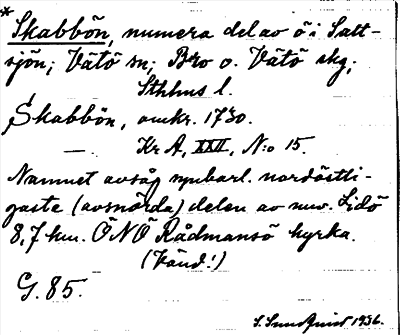 *Skabbön, numera del av ö i Salt-
sjön; Vätö sn; Bro o. Vätö skg;
Sthlms l.
Skabbön, omkr. 1730.
—. Kr A, XXII, N:o 15.
Namnet avsåg uppbarl. nordöstli-
gaste (avsnörda) delen av nuv. Lidö
8,7 km. ÖNÖ Rådmansö kyrka.
(Vänd!)
G. 85.
S. Sundquist 1936.